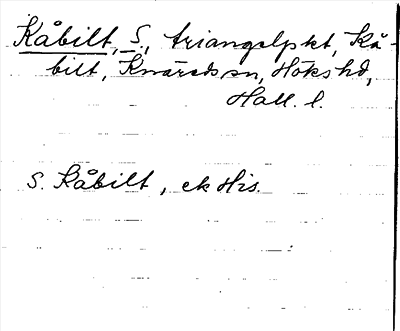 Kåbilt, S., triangelpkt, Kå-
bilt, Knäreds sn, Höks hd,
Hall. l.
S. Kåbilt, ek His.